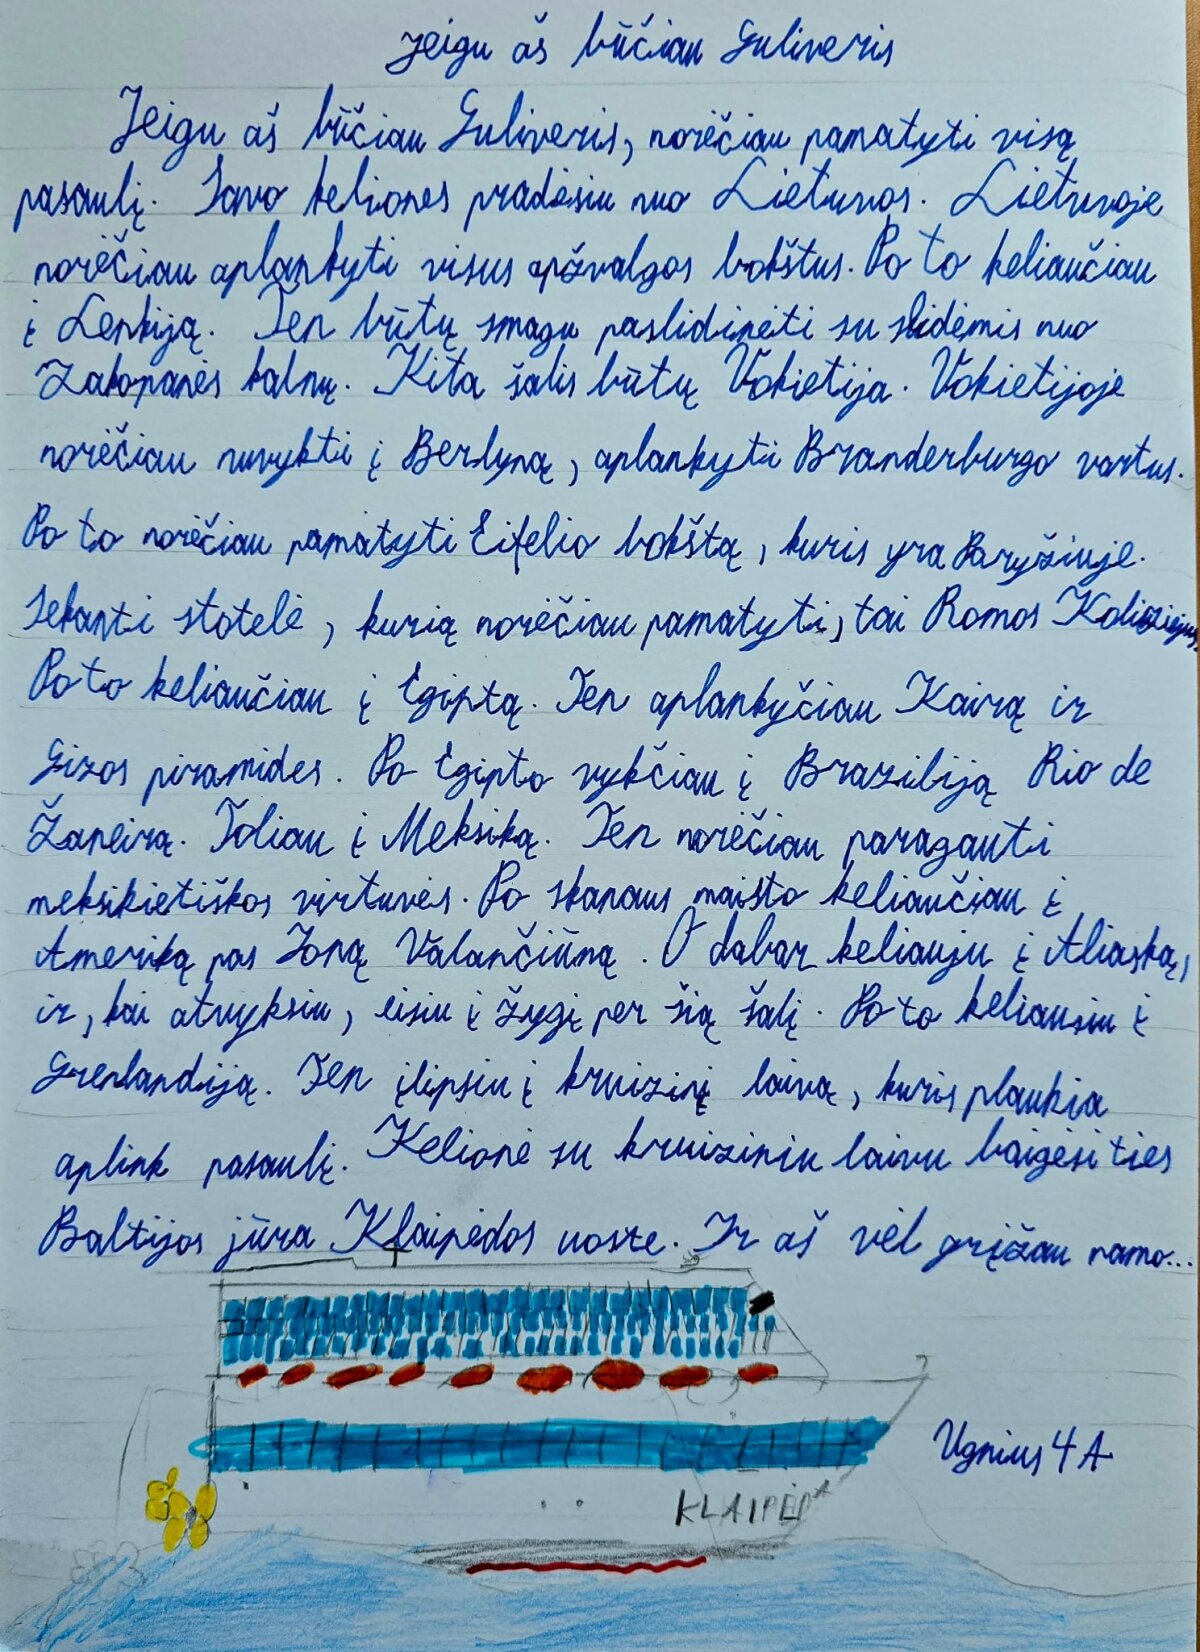 Jeigu aš būčiau Guliveris
Jeigu aš būčiau Guliveris, norėčiau pamatyti visą
pasaulį. Savo keliones pradėsiu nuo Lietuvos. Lietuvoje
norėčiau aplankyti visus apžvalgos bokštus. Po to keliaučiau
į Lenkiją. Ten būtų smagu paslidinėti su slidėmis nuo
Zakopanės kalnų. Kita šalis būtų Vokietija. Vokietijoje
norėčiau nuvykti į Berlyną, aplankyti Branderburgo vartus.
Po to norėčiau pamatyti Eifelio bokštą, kuris yra Paryžiuje.
Sekanti stotelė, kurią norėčiau pamatyti, tai Romos Koliziejus.
Po to keliaučiau į Egiptą. Ten aplankyčiau Kairą ir
Gizos piramides. Po Egipto vykčiau į Braziliją Rio de
Žaneirą. Toliau į Meksiką. Ten norėčiau paragauti
meksikietiškos virtuvės. Po skanaus maisto keliaučiau į
Ameriką pas Joną Valančiūną. O dabar keliauju į Aliaską,
ir, kai atvyksiu, eisiu į žygį per šią šalį. Po to keliausiu į
Grenlandiją. Ten įlipsiu į kruizinį laivą, kuris plaukia
aplink pasaulį. Kelionė su kruiziniu laivu baigėsi ties
Baltijos jūra Klaipėdos uoste. Ir aš vėl grįžau namo...
Ugnius 4 A
KLAIPĖDA